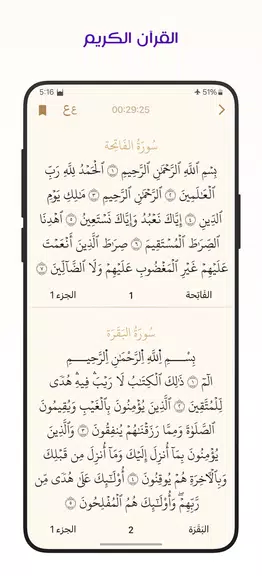 القرآن الكريم
5:16
51%
عع
00:29:25
سُورَةُ الفَاتِحَة
بِسْمِ ٱللَّهِ ٱلرَّحْمَٰنِ ٱلرَّحِيمِ ١ ٱلْحَمْدُ لِلَّهِ رَبِّ
ٱلْعَٰلَمِينَ ٢ ٱلرَّحْمَٰنِ ٱلرَّحِيمِ ٣ مَٰلِكِ يَوْمِ
ٱلدِّينِ ٤ إِيَّاكَ نَعْبُدُ وَإِيَّاكَ نَسْتَعِينُ ٥ ٱهْدِنَا
ٱلصِّرَٰطَ ٱلْمُسْتَقِيمَ ٦ صِرَٰطَ ٱلَّذِينَ أَنْعَمْتَ
عَلَيْهِمْ غَيْرِ ٱلْمَغْضُوبِ عَلَيْهِمْ وَلَا ٱلضَّآلِّينَ ٧
الفَاتِحة 1 الجزء ١
سُورَةُ البَقَرَة
بِسْمِ ٱللَّهِ ٱلرَّحْمَٰنِ ٱلرَّحِيمِ
الٓمٓ ١ ذَٰلِكَ ٱلْكِتَٰبُ لَا رَيْبَۛ فِيهِۛ هُدًى
لِّلْمُتَّقِينَ ٢ ٱلَّذِينَ يُؤْمِنُونَ بِٱلْغَيْبِ وَيُقِيمُونَ
ٱلصَّلَوٰةَ وَمِمَّا رَزَقْنَٰهُمْ يُنفِقُونَ ٣ وَٱلَّذِينَ
يُؤْمِنُونَ بِمَآ أُنزِلَ إِلَيْكَ وَمَآ أُنزِلَ مِن قَبْلِكَ
وَبِٱلْءَاخِرَةِ هُمْ يُوقِنُونَ ٤ أُو۟لَٰٓئِكَ عَلَىٰ هُدًى مِّن
رَّبِّهِمْۖ وَأُو۟لَٰٓئِكَ هُمُ ٱلْمُفْلِحُونَ ٥
البَقَرَة 2 الجزء ١